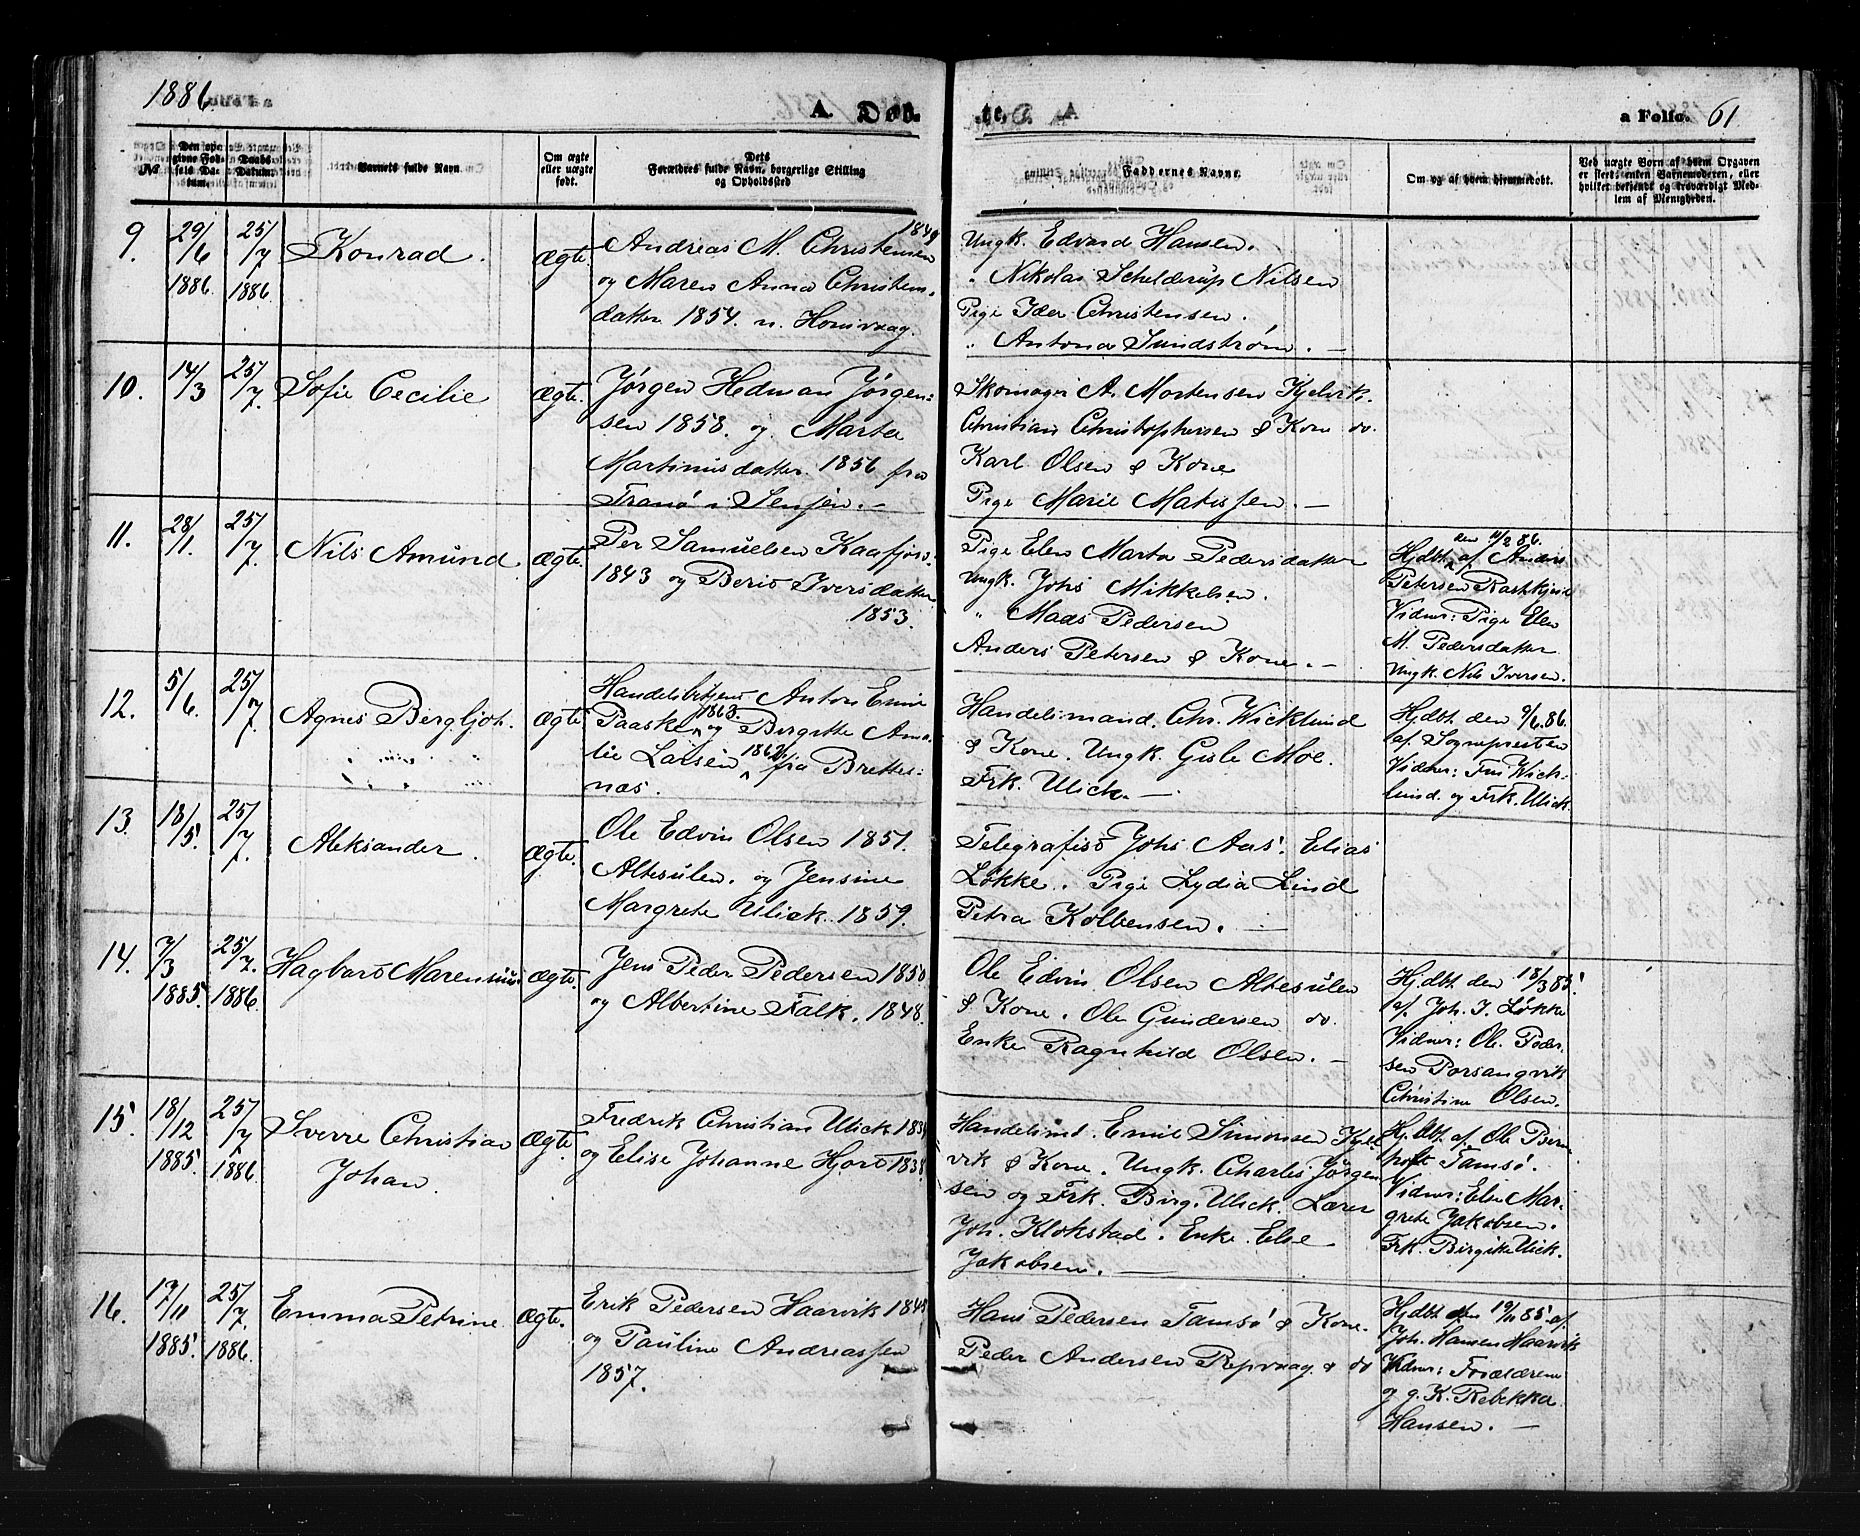 1886.
A. Døb-
te. A
a Folio. 61
No
Den opgivne Fødsels Datum.
Daabs Datum.
Barnets fulde Navn.
Om ægte eller uægte født.
Dets Forældres fulde Navn, borgerlige Stilling og Opholdssted
Faddernes Navne.
Om og af hvem hjemmedøbt.
Ved uægte Børn af hvem Opgaven er skeet; enten Barnemoderen, eller hvilket bekjendt og troværdigt Medlem af Menigheden.
9. 29/6 1886. 25/7 1886. Konrad. ægte.
Andreas M. Christensen 1849
og Maren Anna Christens-
datter 1854. n. Honsvaag.
Ungk. Edvard Hansen.
" Nikolai Schelderup Nilsen
Pige Ider Christensen.
" Antona Sundstrøm. —
10. 14/3 25/7. Sofie Cecilie ægte.
Jørgen Hedman Jørgen-
sen 1858. og Marta
Martinusdatter 1856 fra
Tranø i Senjen. —
Skomager A. Mortensen Kjelvik.
Christian Christophersen & Kone do.
Karl Olsen & Kone
Pige Marie Matissen. —
11. 28/1. 25/7. Nils Amund ægte.
Per Samuelsen Kaafjord.
1843 og Berit Iversdatter
1853.
Pige Elen Marta Pedersdatter
Ungk. Johs Mikkelsen.
" Mads Pedersen
Anders Petersen & Kone. —
Hjdbt. den 11/2 86. af Anders
Petersen
Vidner: Pige Elen
M. Pedersdatter
Ungk. Nils Iversen.
12. 5/6. 25/7. Agnes Bergljot. ægte
Handelsbetjent Anton Emil
Paaske 1863. og Birgitte Ama-
lie Larsen 1862 fra Brettes-
næs.
Handelsmand. Chr. Wicklund
& Kone. Ungk. Gisle Moe.
Frk. Ulich. —
Hjdbt. den 9/6. 86.
af Sognepresten
Vidner: Fru Wich-
lund. og Frk. Ulich.
13. 18/5. 25/7. Aleksander. ægte.
Ole Edvin Olsen 1851.
Altesulen. og Jensine
Margrete Ulich. 1859.
Telegrafist Johs Aas. Elias
Løkke. Pige Lydia Lind
Petra Kolbensen. —
14. 7/3 1885. 25/7. 1886. Hagbart Marensius ægte.
Jens Peder Pedersen 1850
og Albertine Falk. 1848.
Ole Edvin Olsen Altesulen
& Kone. Ole Gundersen do.
Enke Ragnhild Olsen. —
Hjdbt. den 18/3 85.
af. Joh. J. Løkke
Vidner: Ole Peder-
sen Porsangvik
Christine Olsen.
15. 18/12 1885. 25/7 1886. Sverre Christian
Johan. ægte.
Fredrik Christian Ulich
og Elise Johanne Hjort 1838.
Handelsmd. Emil Simonsen Kjel-
vik & Kone. Ungk. Charles Jørgen-
sen og Frk. Birg. Ulich. Lærer
Joh. Klokstad. Enke Else
Jakobsen. —
Hj.dbt. af Ole Bern-
hoft Tamsø.
Vidner: Elen Mar-
grete Jakobsen.
Frk. Birgitte Ulich.
16. 17/11 1885. 25/7 1886. Emma Petrine ægte.
Erik Pedersen Haarvik 1845
og Pauline Andreassen
1857.
Hans Pedersen Tamsø & Kone.
Peder Andersen Repvaag & do
Hjdbt. den 19/11 85. af
Joh. Hansen Haarvik
Vidner: Forældrene
og g. K. Rebekka
Hansen. —